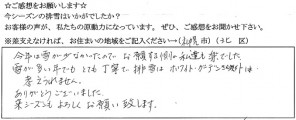 ☆ご感想をお願いします☆
今シーズンの排雪はいかがでしたか？
お客様の声が、私たちの原動力になっています。ぜひ、ご感想をお聞かせ下さい。
※差支えなければ、お住まいの地域をご記入ください→(札幌 市) (北 区)
今年は雪が少なかったので お願いする側の私達も楽でした。
雪が多い年でも とても丁寧で 排雪は ホワイトガーデンさん以外は
考えられません。
ありがとうございました。
来シーズンも よろしく お願い致します。